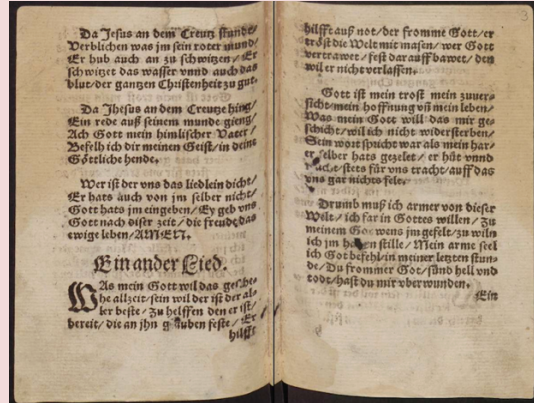 Da Jesus an dem Creutz stunde/
Verblichen was jm sein roter mund/
Er hub auch an zu schwitzen/Er
schwitzet das wasser vnnd auch das
blut/der gantzen Christenheit zu gut.
Da Jhesus an dem Creutze hing/
Ein rede auß seinem munde gieng/
Ach Gott mein himlischer Vater/
Befelh ich dir meinen Geist/in deine
Göttliche hende.
Wer ist der vns das liedlein dicht/
Er hats auch von jm selber nicht/
Gott hats jm eingeben/Ey geb vns
Gott nach diser zeit/die freude das
ewige leben/AMEN.
Ein ander Lied.
WAs mein Gott wil das gesche-
he allzeit/sein wil der ist der al-
ler beste/Zu helffen den er ist/
bereit/die an jhn glauben feste/Er
hilfft
3
hilfft auß not/der fromme Gott/er
tröst die Welt mit masen/wer Gott
vertrawet/fest darauff bawet/den
wil er nicht verlassen.
Gott ist mein trost mein zuuer-
sicht/mein hoffnung vñ mein leben/
Was mein Gott will das mir ge-
schicht/wil ich nicht widersterben/
Sein wort spricht war als mein har-
er selber hats gezelet/er hüt vnnd
wacht/stets für vns tracht/auff das
vns gar nichts fele.
Drumb muß ich armer von dieser
Welt/ich far in Gottes willen/Zu
meinem Gott wens jm gefelt/zu wiln
ich jm halten stille/Mein arme seel
ich Got befehl/in meiner letzten stun-
de/Du frommer Got/sünd hell vnd
todt/hast du mir vberwunden.
Ein